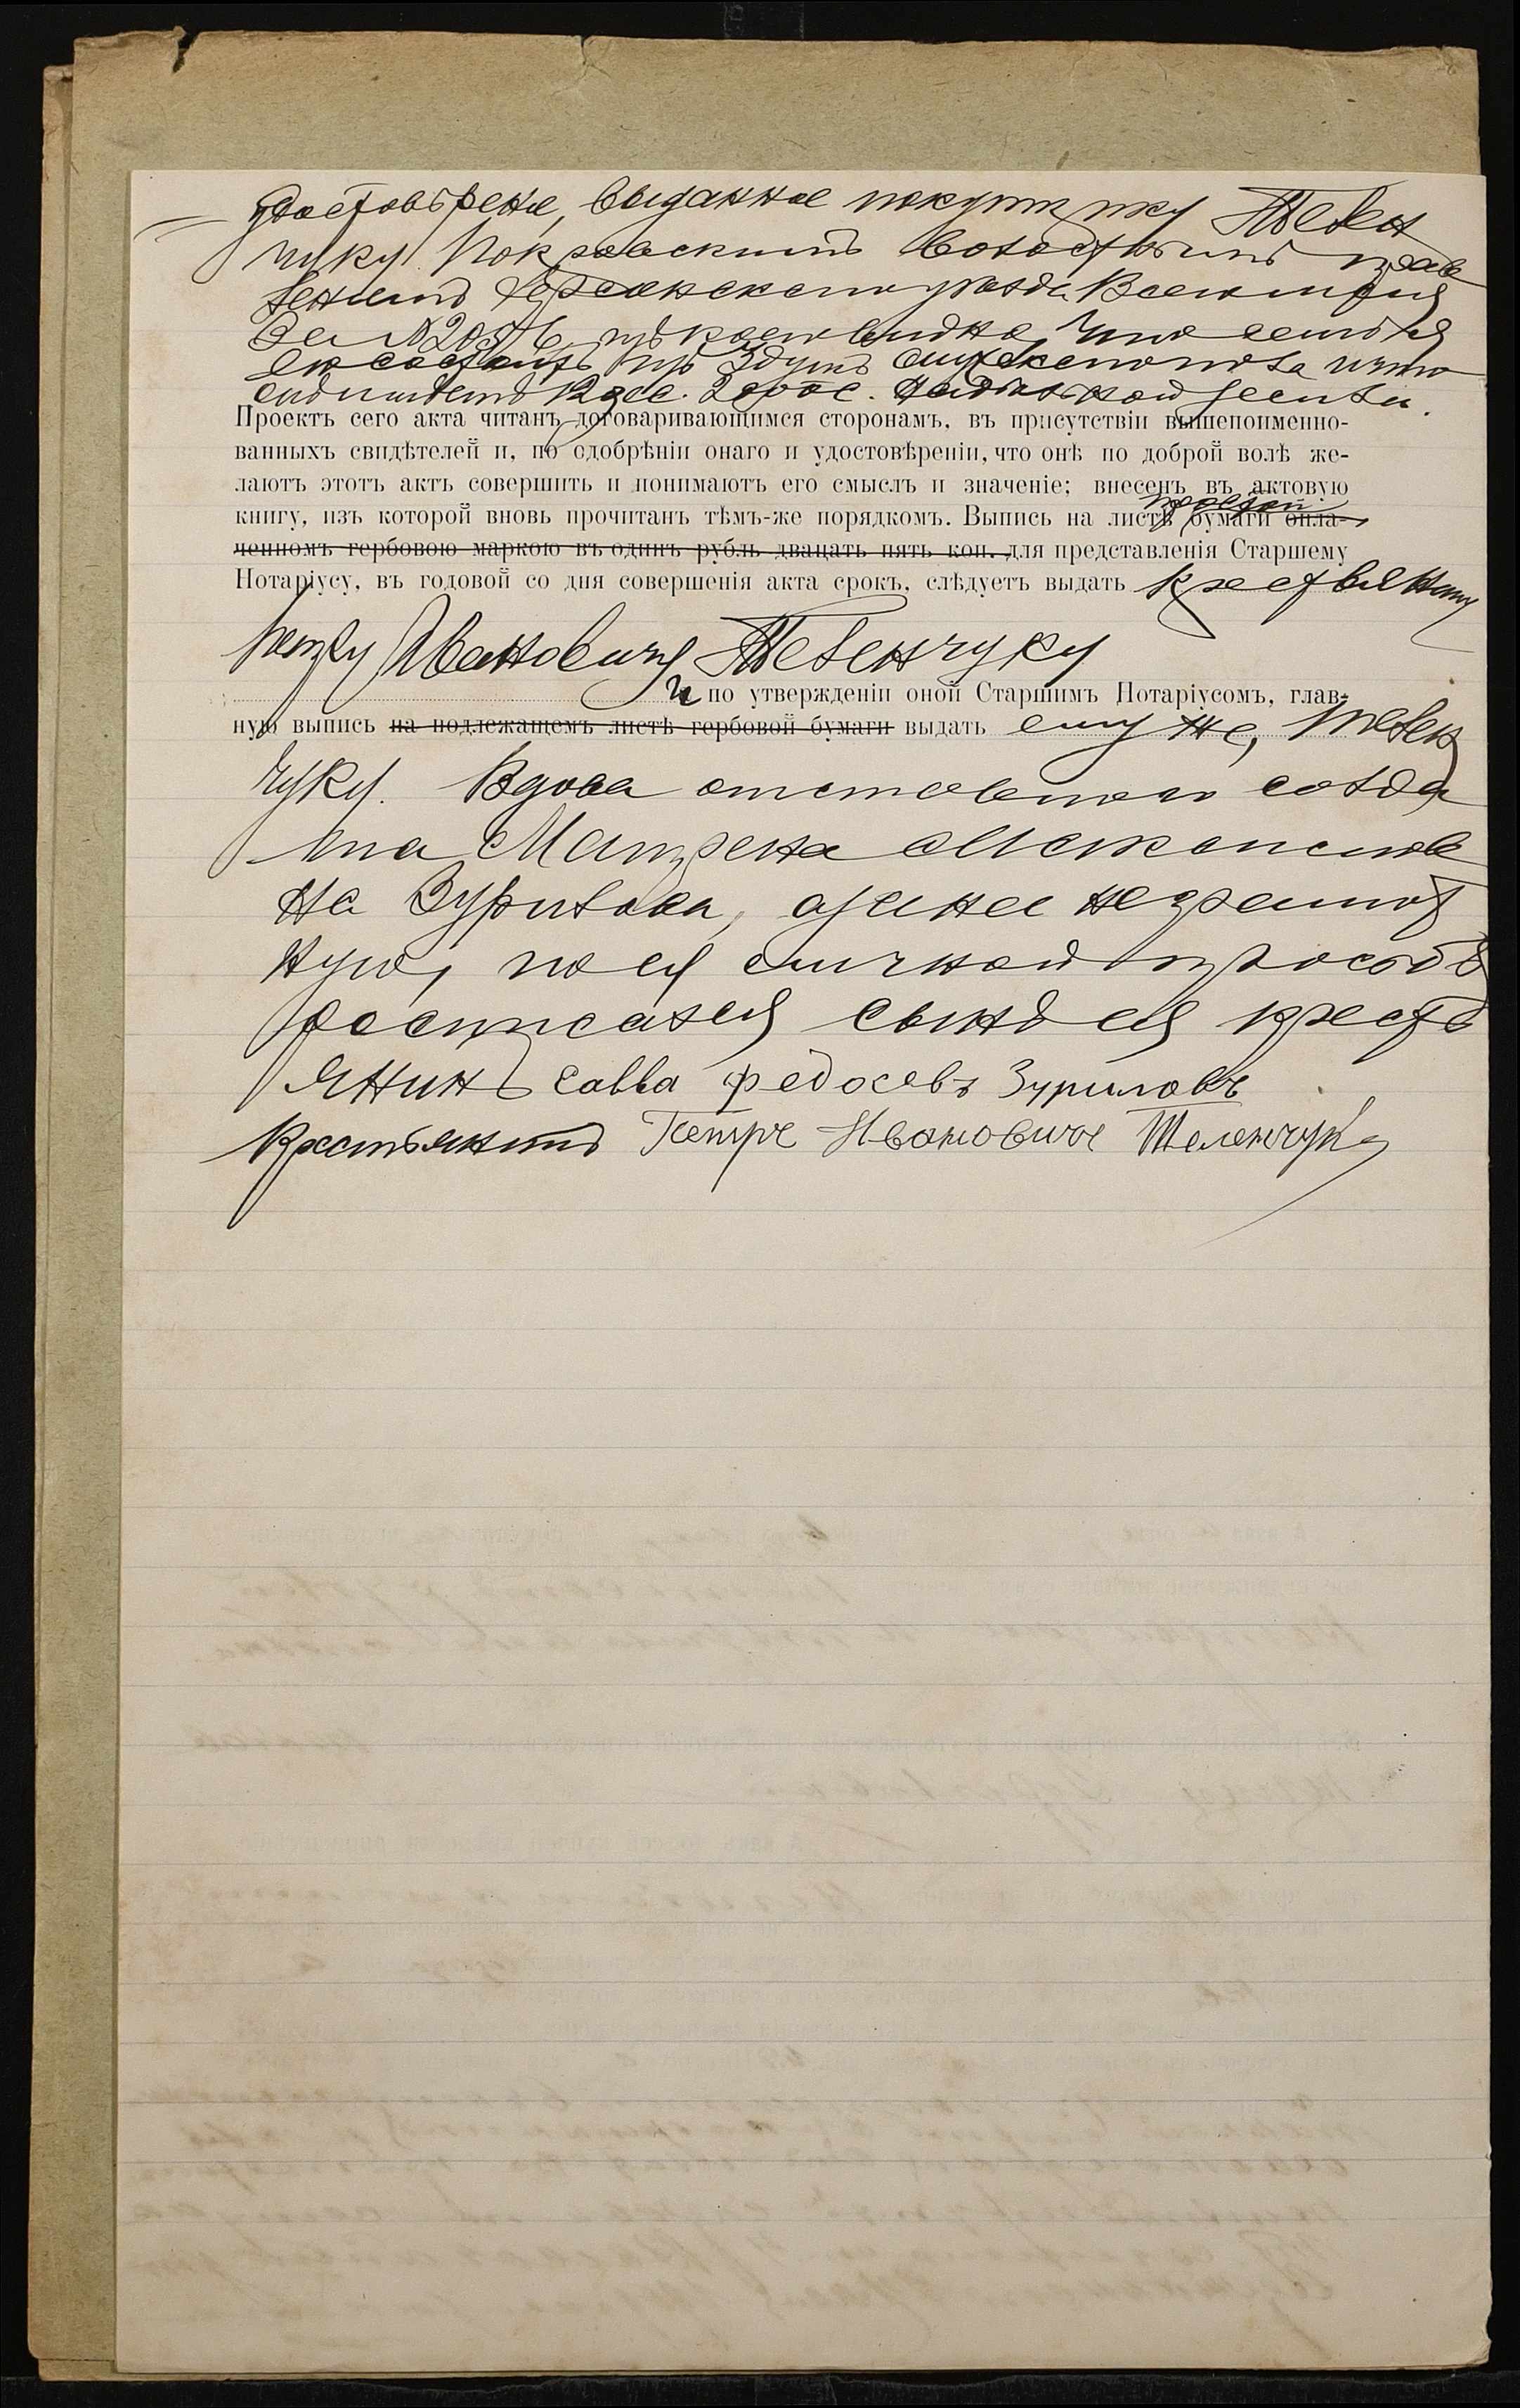 удостовѣренiе, выданное покупщику Телен
чуку Покровскимъ волостнымъ прав
ленiемъ Херсонскаго уѣзда
за № 2057, изъ коего видно, что семья
его состоитъ изъ душъ мужескаго пола и что
онъ имѣетъ надѣльной земли.
Проектъ сего акта читанъ договаривающимся сторонамъ, въ присутствіи вышепоименно-
ванныхъ свидѣтелей и, по одобрѣніи онаго и удостовѣреніи, что онѣ по доброй волѣ же-
лаютъ этотъ актъ совершить и понимаютъ его смыслъ и значеніе; внесенъ въ актовую
простой
книгу, изъ которой вновь прочитанъ тѣмъ-же порядкомъ. Выпись на листѣ бумаги опла-
ченномъ гербовою маркою въ одинъ рубль двацать пять коп. для представленія Старшему
Нотаріусу, въ годовой со дня совершенія акта срокъ, слѣдуетъ выдать крестьянину
Петру Ивановичу Теленчуку
и по утвержденіи оной Старшимъ Нотаріусомъ, глав-
ную выпись на подлежащемъ листѣ гербовой бумаги выдать ему же, Телен
чуку. Вдова отставного солда
та Матрена
на Зурилова, а за нее неграмот
ную, по ея личной просьбѣ
росписался сынъ ея кресть
янинъ Савва Федосевъ Зуриловъ
Крестьянинъ Петръ Ивановичъ Теленчукъ